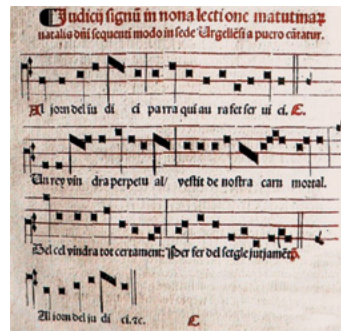 Judicij signũ in nona lectione matutinaꝝ
natalis dñi sequenti modo in sede Urgellẽsi a puero cãtatur.
Al jorn del iu di ci parra qui au ra fet ser ui ci. ℟.
Un rey vin dra perpetu al/ vestit de nostra carn mortal.
Del cel vindra tot certament: ꝑ fer del setgle jutjamẽt. ℟
Al iorn del ju di ci. ⁊c. ℟.